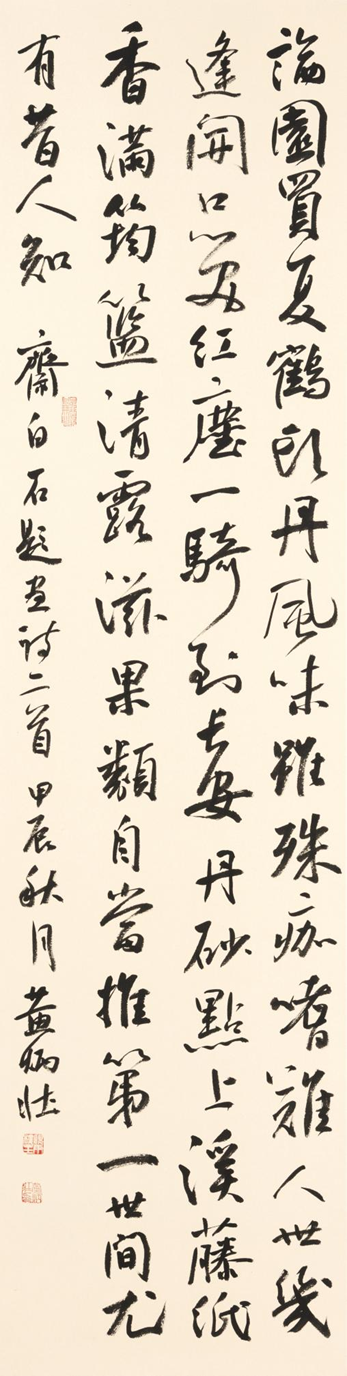 論園買夏鶴頂丹風味雖殊痂嗜難人世幾
逢開口笑紅塵一騎到長安丹砂點上溪藤紙
香滿筠籃清露滋果類自當推第一世間尤
有昔人知 齊白石題畫詩二首甲辰秋月黃炳壯